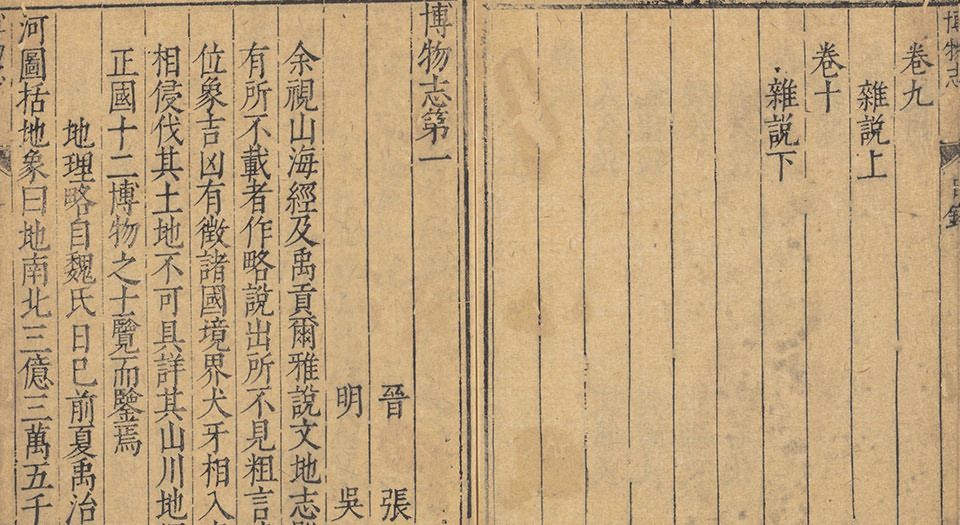 博物志
卷九
雜說上
卷十
雜說下
博物志第一
晉 張
明 吳
余視山海經及禹貢爾雅說文地志
有所不載者作略說出所不見粗言
位象吉凶有徵諸國境界犬牙相入
相侵伐其土地不可具詳其山川地
正國十二博物之士覽而鑒焉
地理略自魏氏日已前夏禹治
河圖括地象曰地南北三億三萬五千